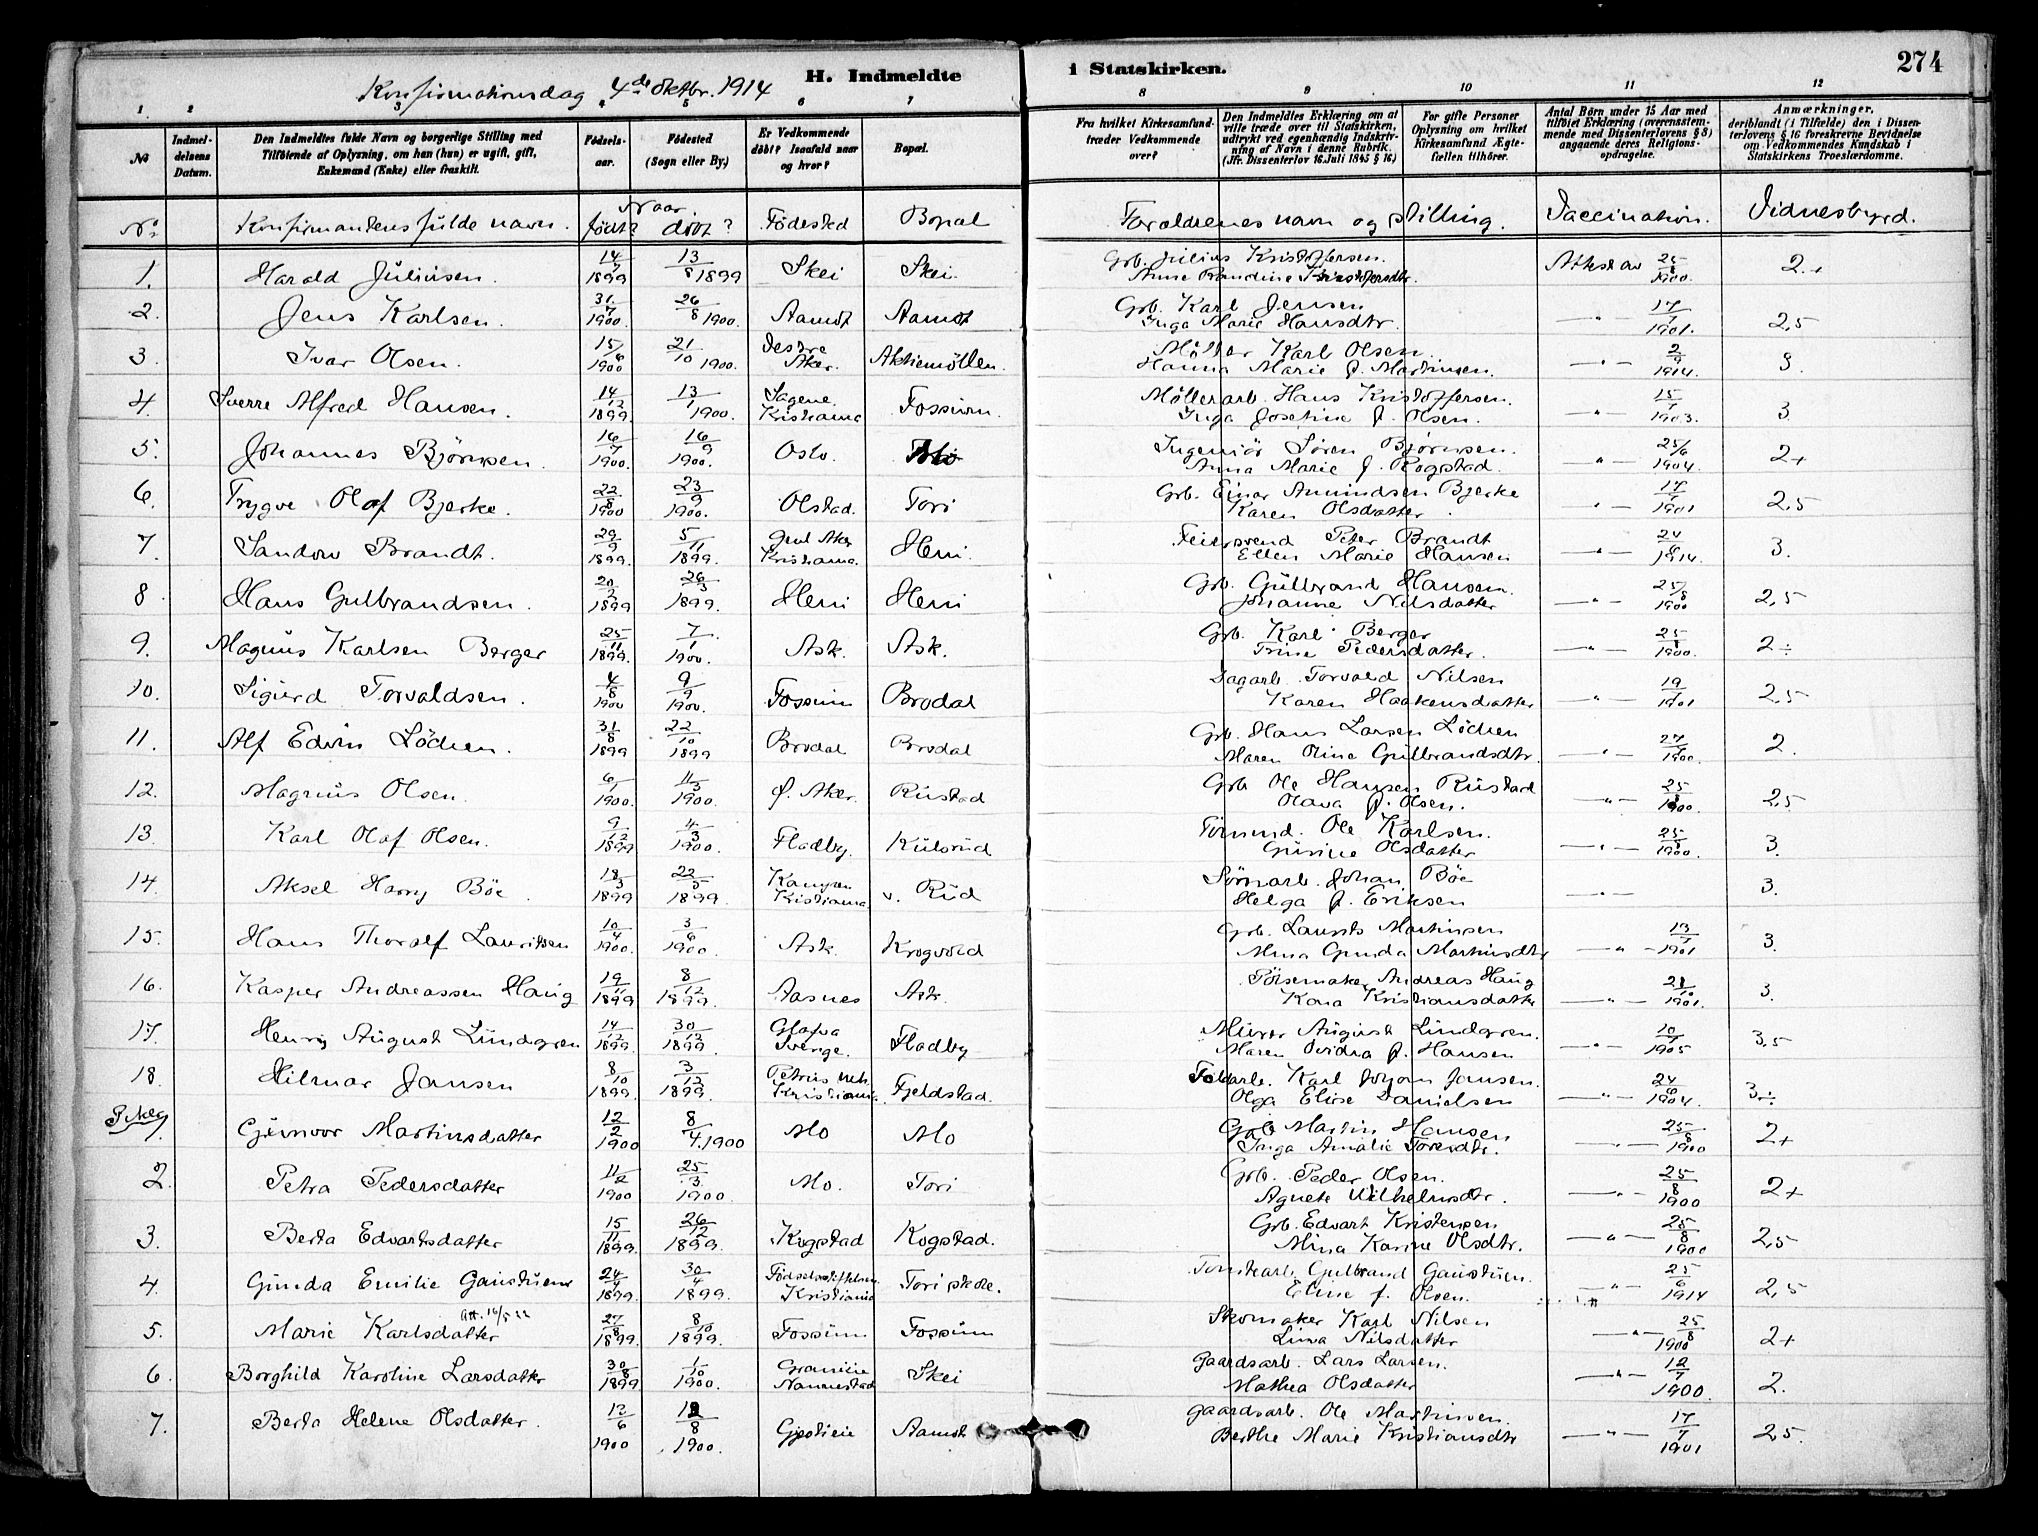 274
H. Indmeldte i Statskirken.
Konfirmationsdag 4de Oktbr. 1914
1 2 3 4 5 6 7 8 9 10 11 12
No
Indmel-
delsens
Datum.
Den Indmeldtes fulde Navn og borgerlige Stilling med
Tilføiende af Oplysning, om han (hun) er ugift, gift,
Enkemand (Enke) eller fraskilt.
Fødsels-
aar.
Fødested
(Sogn eller By.)
Er Vedkommende
døbt? Isaafald naar
og hvor?
Bopæl.
Fra hvilket Kirkesamfund
træder Vedkommende
over?
Den Indmeldtes Erklæring om at
ville træde over til Statskirken,
udtrykt ved egenhændig Indskriv-
ning af Navn i denne Rubrik.
(Jfr. Dissenterlov 16 Juli 1845 § 16.)
For gifte Personer
Oplysning om hvilket
Kirkesamfund Ægte-
fællen tilhører.
Antal Børn under 15 Aar med
tilføiet Erklæring (overensstem-
mende med Dissenterlovens § 8)
angaaende deres Religions-
opdragelse.
Anmærkninger,
deriblandt (i Tilfælde) den i Dissen-
terlovens § 16 foreskrevne Bevidnelse
om Vedkommendes Kundskab i
Statskirkens Troeslærdomme.
No Konfirmantens fulde navn. Naar født? døbt? Fødested Bopæl Foreldrenes navn og stilling. Vaccination. Vidnesbyrd.
1. Harald Juliusen. 14/7 1899 13/8 1899 Skei Skei. Grb. Julius Kristoffersen. Attest av 25/8 1900. 2+
2. Jens Karlsen. 31/7 1900. 26/8 1900. Aamot Aamot Grb. Karl Jensen
Inga Marie Hansdtr. —"— 17/7 1901. 2,5
3. Ivar Olsen. 15/6 1900 21/10 1900. Vestre Aker. Aktiemöllen. Möller Karl Olsen
Hanna Marie f. Martinsen. —"— 2/9 1914. 3.
4. Sverre Alfred Hansen. 14/12 1899. 13/1 1900. Sagene Kristiania Fossum. Möllerarb. Hans Kristoffersen.
Inga Josefine f. Olsen. " 15/7 1903. 3
5. Johannes Björnsen. 16/7 1900. 16/9 1900. Oslo. Ingeniör Sören Bjørnsen.
Anna Marie f. Rogstad. —"— 25/6 1904. 2+
6. Trygve Olaf Bjerke. 22/8 1900 23/9 1900. Olstad. Tori Grb. Einar Amundsen Bjerke
Karen Olsdatter. " 17/7 1901 2,5
7. Sandow Brandt. 29/9 1899. 5/11 1899. Gml Aker Kristiania. Heni. Feiersvend Peter Brandt
Ellen Marie Hansen —"— 24/8 1914. 3.
8. Hans Gulbrandsen. 20/2 1899 26/3 1899. Heni Heni Grb. Gulbrand Hansen.
Johanne Nilsdatter —"— 25/8 1900 2,5
9. Magnus Karlsen Berger 25/11 1899. 7/1 1900. Ask. Ask. Grb. Karl Berger
Trine Pedersdatter. —"— 25/8 1900. 2÷
10. Sigurd Torvaldsen. 4/8 1900 9/9 1900. Fossum Brodal Sagarb. Torvald Nilsen
Karen Haakensdatter —"— 19/7 1901 2,5
11. Alf Edvin Löchen. 31/8 1899 22/10 1899 Brodal Brodal Grb. Hans Larsen Löchen
Maren Oline Gulbrandsdtr. —"— 1900. 2.
12. Magnus Olsen. 6/1 1900. 11/3 1900. Ø. Aker. Rustad Grb Ole Hansen Rustad
Olava f. Olsen. —"— 25/8 1900. 2,5
13. Karl Olaf Olsen. 9/12 1899 4/3 1900. Fladby. Kulsrud Ole Karlsen.
Gusine Olsdatter —"— 25/8 1900. 3.
14. Aksel Harry Böe. 18/3 1899 22/5 1899. Kampen Kristiania v. Rud Johan Böe
Helga f. Eriksen —"— 3.
15. Hans Thoralf Lauritsen 10/4 1900. 3/6 1900 Ask. Krogvold Grb. Laurits Martinsen
Mina Gunda Martinsdtr —"— 13/7 1901 3.
16. Kasper Andreassen Haug 19/11 1899. 8/12 1899. Aasnes Ask. Andreas Haug
Kristiansdatter —"— 21/10 1901. 3.
17. Henry August Lundgren 14/12 1899. 30/12 1899. Glafva Sverige. Fladby Murer August Lundgren.
Maren Ovidia f. Hansen —"— 10/7 1905 3,5
18. Hilmar Jansen 8/10 1899. 3/12 1899. Petrus Kristiania. Fjeldstad. Karl Johan Jansen.
Olga Elise Danielsen —"— 24/6 1904. 3÷
Piker
1. Gunvor Martinsdatter 12/2 1900 8/4 1900 Mo Mo Grb. Martin Hansen
Inga Amalie Toresdtr. —"— 25/8 1900 2+
2. Petra Pedersdatter 11/2 1900 25/3 1900. Mo. Tori Grb. Peder Olsen.
Agnete Wilhelmsdtr. —"— 25/8 1900 2+
3. Berta Edvartsdatter 15/11 1899. 26/12 1899. Kogstad Kogstad. Grb. Edvart Kristensen
Mina Karine Olsdtr. —"— 25/8 1900 2,5
4. Gunda Emilie Gaustuen 24/4 1899. 30/4 1899. Födselsstiftelsen. Kristiania Tori skole. Gulbrand Gaustuen.
Eline f. Olsen. " 25/6 1914 2,5
5. Marie Karlsdatter Att. 16/5 22 27/8 1899. 8/10 1899. Fossum Fossum Skomaker Karl Nilsen
Lina Nilsdatter —"— 25/8 1900 2+
6. Borghild Karoline Larsdatter 30/8 1899 1/10 1900. Nannestad Skei Gaardsarb. Lars Larsen.
Mathea Olsdatter —"— 12/7 1900. 2.
7. Berta Helene Olsdatter. 12/6 1900 12/8 1900. Gjestieie Aamot Gaardsarb. Ole Martinsen.
Berthe Marie Kristiansdtr —"— 17/7 1901 2,5.